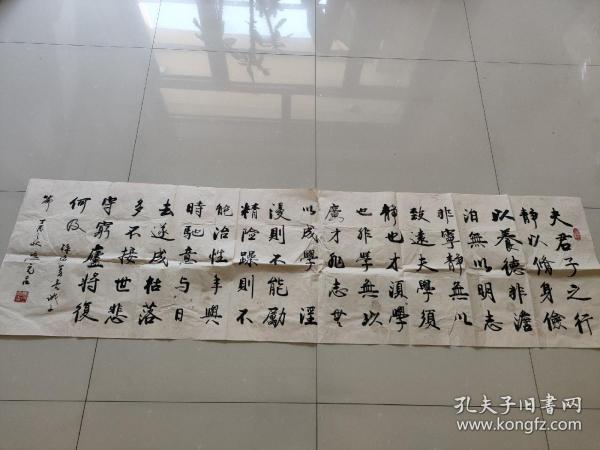 夫君子之行
静以脩身儉
以養德非澹
泊無以明志
非寧靜無以
致遠夫學須
靜也才須學
也非學無以
廣才非志無
以成學淫
漫則不能勵
精險躁則不
能治性年與
時馳意与日
去遂成枯落
多不接世悲
守窮廬將復
何及 諸葛亮誡子
孔夫子旧书网
www.kongfz.com